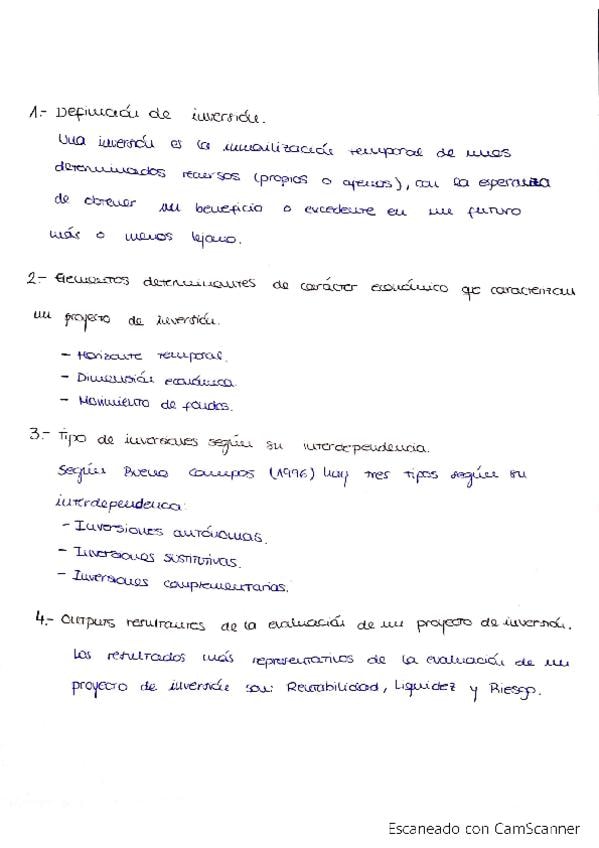 1.- Definición de inversión.
Una inversión es la inmovilización temporal de unos
determinados recursos (propios o ajenos), con la esperanza
de obtener un beneficio o excedente en un futuro
más o menos lejano.
2.- Elementos determinantes de carácter económico que caracterizan
un proyecto de inversión.
- Horizonte temporal.
- Dimensión económica.
- Movimiento de fondos.
3.- Tipo de inversiones según su interdependencia.
Según Bueno Campos (1996) hay tres tipos según su
interdependencia:
- Inversiones autónomas.
- Inversiones sustitutivas.
- Inversiones complementarias.
4.- Outputs resultantes de la evaluación de un proyecto de inversión.
Los resultados más representativos de la evaluación de un
proyecto de inversión son: Rentabilidad, Liquidez y Riesgo.
Escaneado con CamScanner